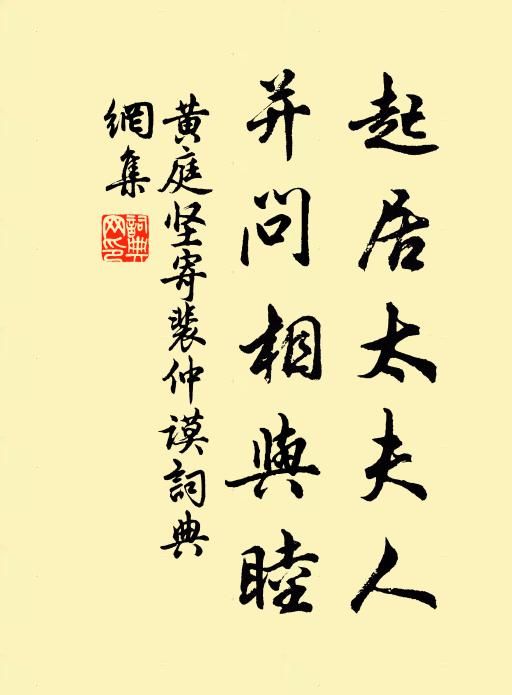 起居太夫人
并问相與睦
黄庭坚寄裴仲谟詞典
網集
詞典
网印